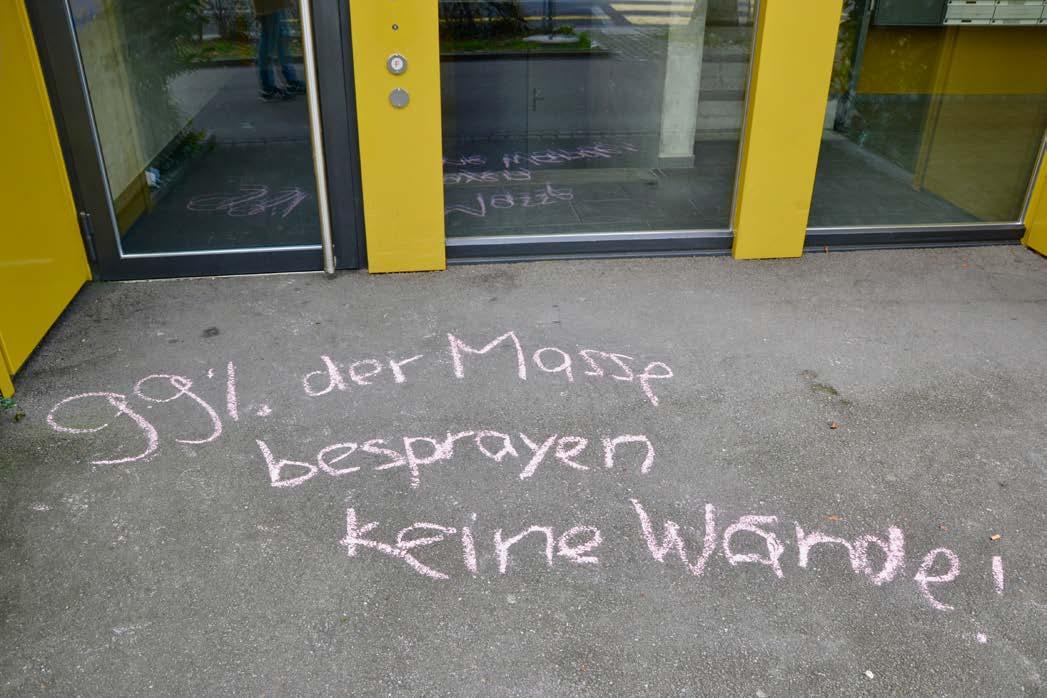 99% der Masse
besprayen
keine Wände!